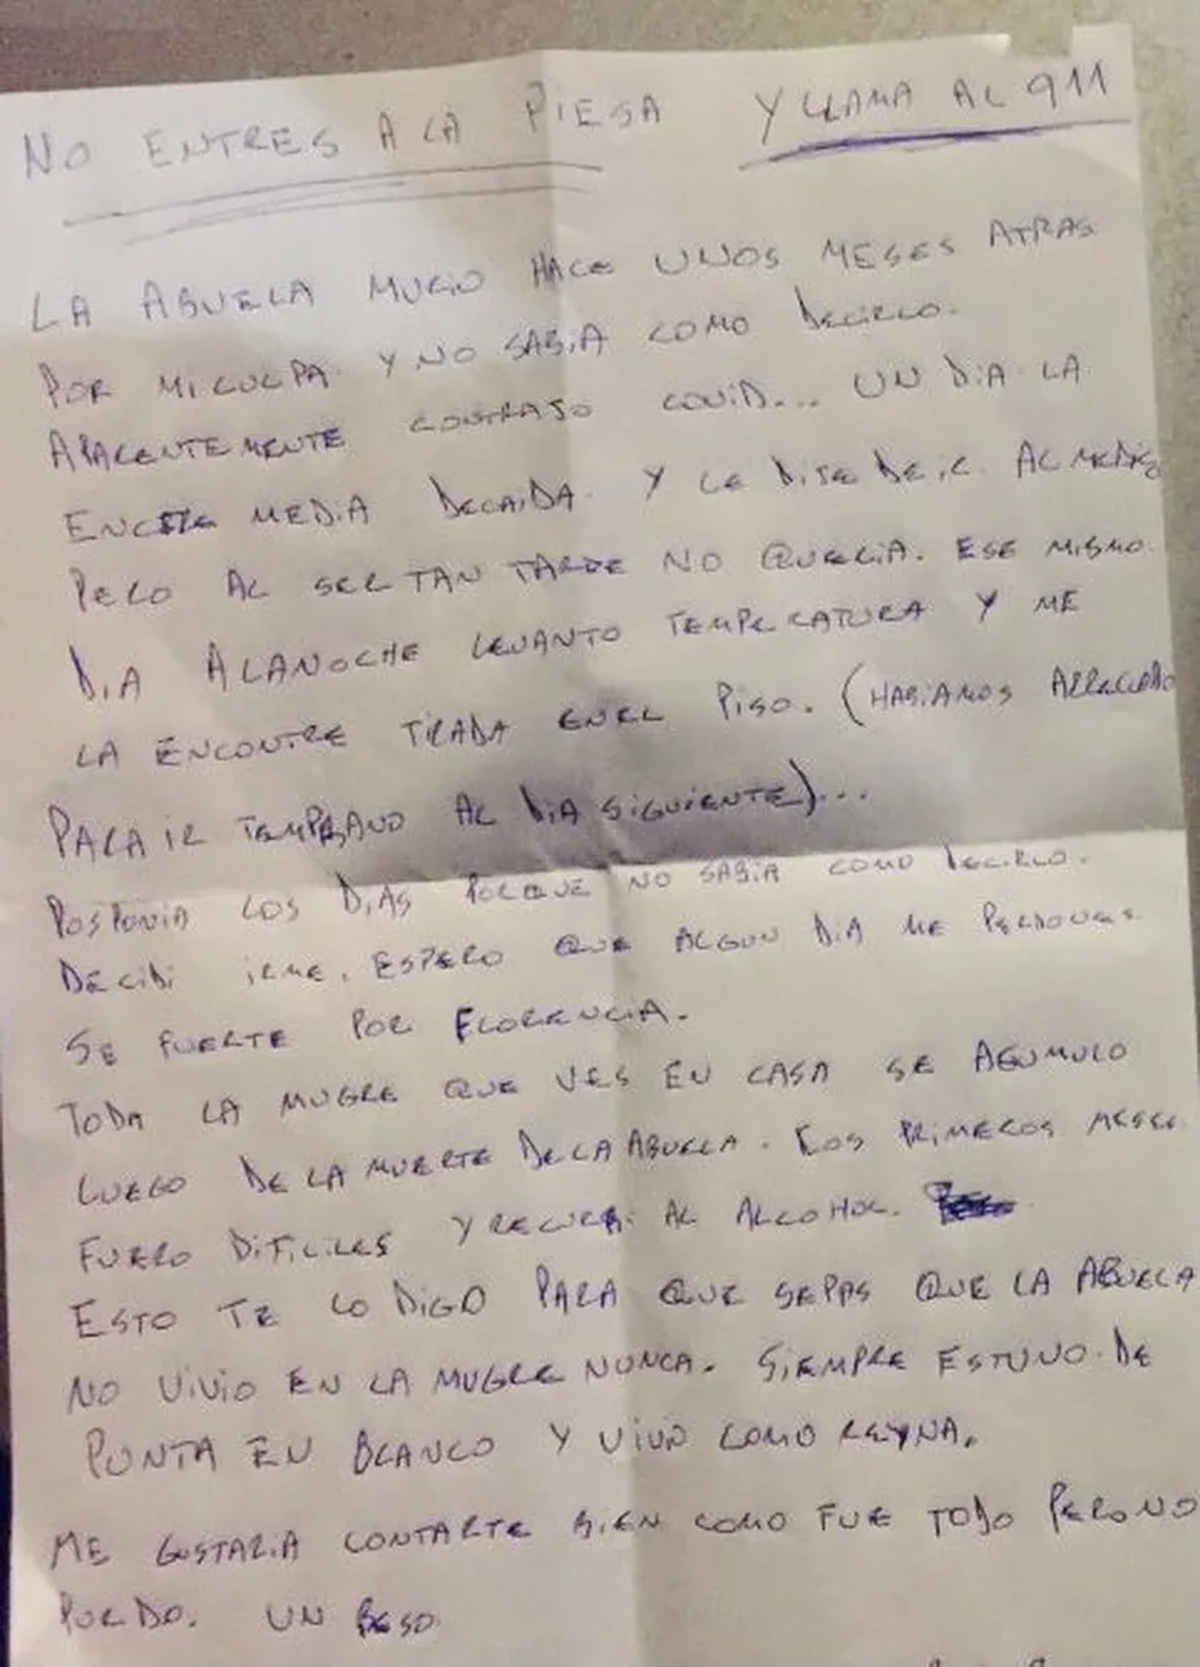 NO ENTRES A LA PIESA Y LLAMA AL 911
LA ABUELA MURIO HACE UNOS MESES ATRAS
POR MI CULPA Y NO SABIA COMO DECIRLO.
APARENTEMENTE CONTRAJO COVID... UN DIA LA
ENCTRE MEDIA DECAIDA Y LE DIJE DE IR AL MEDICO
PERO AL SER TAN TARDE NO QUERIA. ESE MISMO
DIA A LA NOCHE LEVANTO TEMPERATURA Y ME
LA ENCONTRE TIRADA EN EL PISO. (HABIAMOS ARREGLADO
PARA IR TEMPRANO AL DIA SIGUIENTE)...
POSPONIA LOS DIAS PORQUE NO SABIA COMO DECIRLO.
DECIDI IRME. ESPERO QUE ALGUN DIA ME PERDONES
SE FUERTE POR FLORENCIA.
TODA LA MUGRE QUE VES EN CASA SE AGUMULO
LUEGO DE LA MUERTE DE LA ABUELA. LOS PRIMEROS MESES
FUERO DIFICILES Y RECURRI AL ALCOHOL.
ESTO TE LO DIGO PARA QUE SEPAS QUE LA ABUELA
NO VIVIO EN LA MUGRE NUNCA. SIEMPRE ESTUVO DE
PUNTA EN BLANCO Y VIVIO COMO REYNA.
ME GUSTARIA CONTARTE BIEN COMO FUE TODO PERO NO
PUEDO. UN BESO